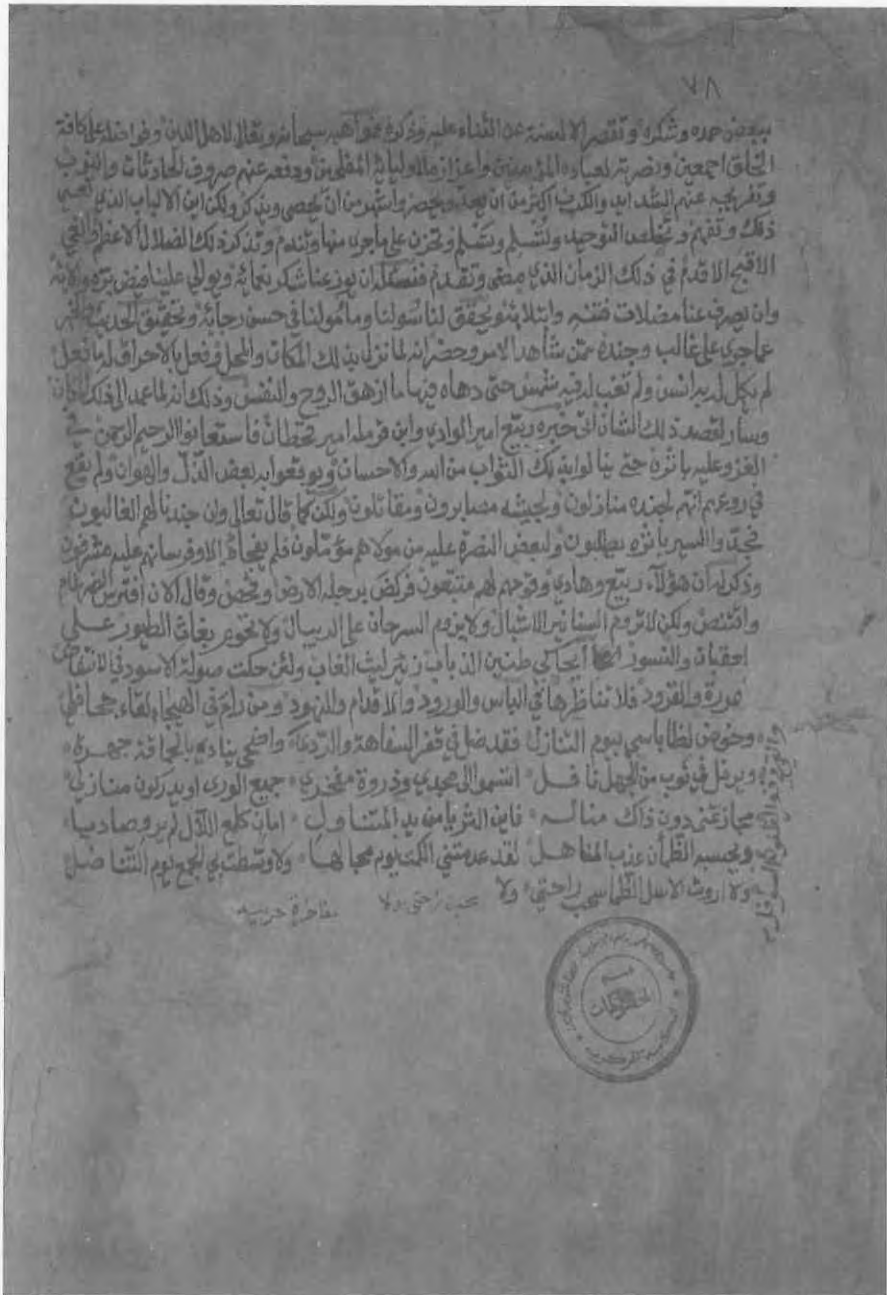 ٧٨
ببعض حمده وشكره وتقصر الالسنة عن الثناء عليه وذكره فمواهبه سبحانه وتعالى لاهل الدين وفواضله على كافة
الخلق اجمعين ونصرته لعباده المؤمنين واعزازه لاوليائه المفلحين ودفعه عنهم صروف الحادثات والنوب
وتفريجه عنهم الشدايد والكرب اكثر من ان يعد ويحصر واشهر من ان يحصى ويذكر ولكن اين الالباب الذي تعي
ذلك وتفهم وتخلص التوحيد وتستسلم وتحزن على ما جرى منها وتندم وتذكر ذلك الضلال الاعظم والغي
الاقبح الاقدم في ذلك الزمان الذي مضى وتقدم فنسئله ان يوزعنا شكر نعمائه ويوالي علينا فيض بره والائه
وان يصرف عنا مضلات فتنه وابتلائه ويحقق لنا سولنا ومامولنا في حسن رجائه وتحقيق الحديث والخبر
عما جرى على غالب وجنده ممن شاهد الامر وحضر انه لما نزل بذلك المكان والمحل وفعل بالاحراق له ما فعل
لم يكمل لديه انس ولم تغب له فيه شمس حتى دهاه فيها ما ازهق الروح والنفس وذلك انه لما عمد الى ذلك المكان
وسار لقصد ذلك الشان اتى خبره ربيع امير الوادي وابن قرمله امير قحطان فاستعانوا الرحيم الرحمن في
الغزو عليه باثره حتى ينالوا بذلك الثواب من الله والاحسان ويوقعوا به بعض الذل والهوان ولم يقع
في روعهم انهم لجنده منازلون ولجيشه مصابرون ومقاتلون ولكن كما قال تعالى وان جندنا لهم الغالبون
فجدوا المسير باثره يطلبون ولبعض النصرة عليه من مولاهم مؤملون فلم يفجأه الا وفرسانهم عليه مشرفون
وذكر له ان هؤلاء ربيع وهادي وقومهم لهم متبعون فركض برجله الارض وفحص وقال الان افترس الضرغام
واقتنص ولكن لا تروم السنانير الاشبال ولا يروم السرحان على الريبال ولا تغوير بغاث الطيور على
العقبان والنسور ايحاكي طنين الذباب زئير ليث الغاب ولئن حكت صولة الاسود في الانتفاض
صورة والقرود فلا تناظرها في الباس والورود والاقدام والنهود ومن رام في الهيجاء لقاء جحافلي
وخوض لظا باسي بيوم التنازل فقد ضل في قفر السفاهة والردى واضحى يناديه بالحماقة جهرة
ويرفل في ثوب من الجهل نافل ايسموا الى مجدي وذروة مفخري جميع الورى او يدركون منازلي
مجاز عني دون ذاك مناله فاين الثريا من يد المتناول امان كلمع الآل لم يرو صاديا
ويحسبه الظمأن عذب المناهل لقد عدمتني الكمت يوم مجالها ولا وسطت بي الجمع يوم التناضل
ولا اروت الاسل الظما سحب راحتي ولا
سحب راحتي ولا
مفاخرة حربيه
المخطوطات